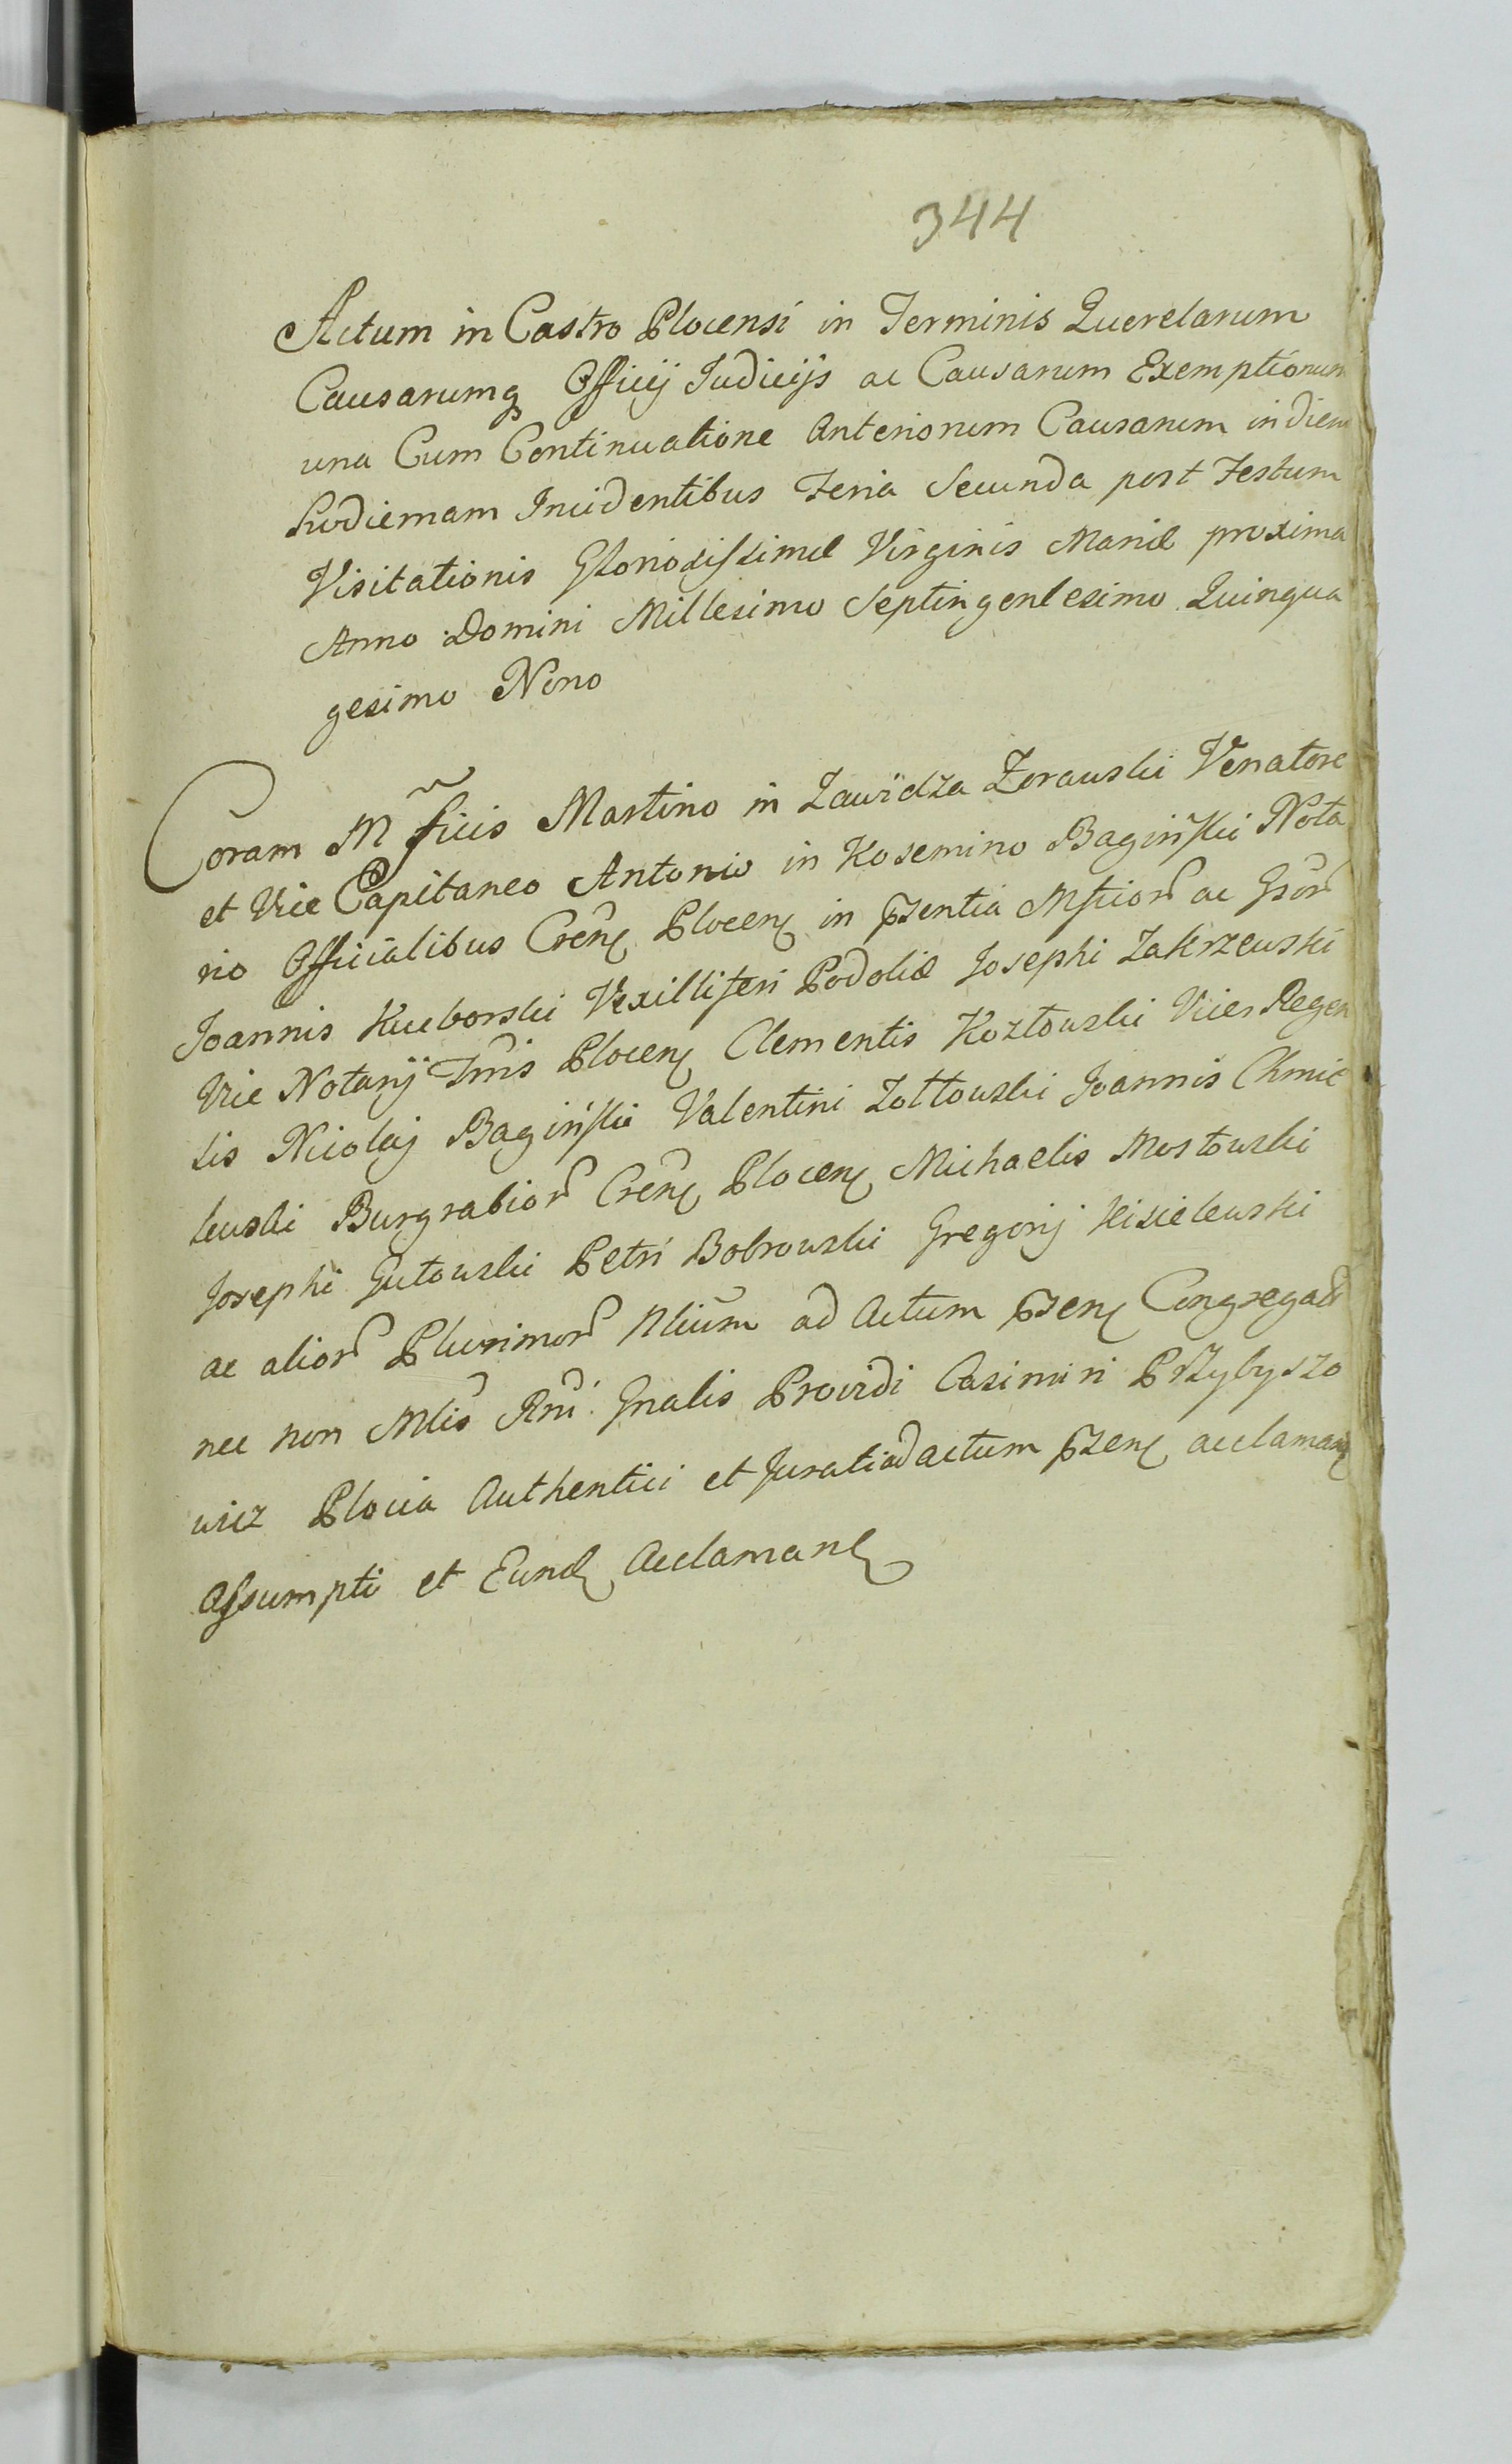 344
Actum in Castro Plocensi in Terminis Querelarum
Causarumq Officij Judicijs ac Causarum Exemptionum
una Cum Continuatione Anteriorum Causarum in diem
hodiernam Incidentibus Feria Secunda post Festum
Visitationis Gloriosissimæ Virginis Mariæ proxima
Anno Domini Millesimo Septingentesimo Quinqua
gesimo Nono
Coram Mficis Martino in Zawidza Zorawski Venatore
et Vice Capitaneo Antonio in Kosemino Bagiński Nota
rio Officialibus Cren Plocen in pzentia Mficior ac Gsor
Joannis Kucborski Vexilliferi Podoliæ Josephi Zakrzewski
Vice Notarij Trris Plocen Clementis Kozłowski Vices Regen
tis Nicolaj Bagiński Valentini Zołtowski Joannis Chmie
lewski Burgrabior Cren Plocen Michaelis Mostowski
Josephi Gutowski Petri Bobrowski Gregorij Kisielewski
ac alior Plurimor Nlium ad Actum pzen Congregat
nec non Mlis Rni Gnalis Providi Casimiri Przybyszo
wicz Plocia Authentici et Jurati ad actum pzen acclaman
assumpti et Eund Acclaman